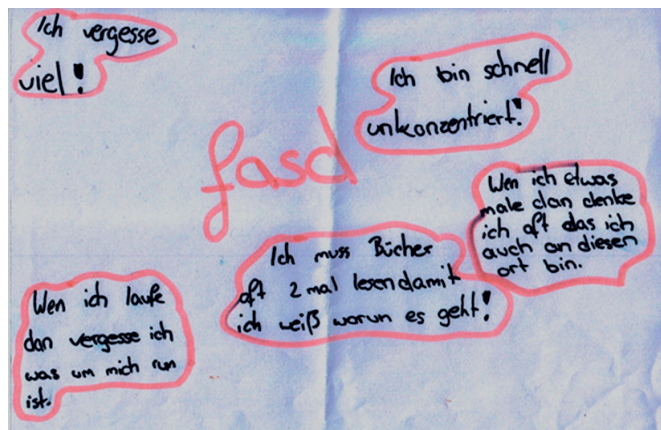 Ich vergesse
viel!
Ich bin schnell
unkonzentriert!
fasd
Wen ich etwas
male dan denke
ich oft das ich
auch an diesen
ort bin.
Ich muss Bücher
oft 2 mal lesen damit
ich weiß worun es geht!
Wen ich laufe
dan vergesse ich
was um mich run
ist.